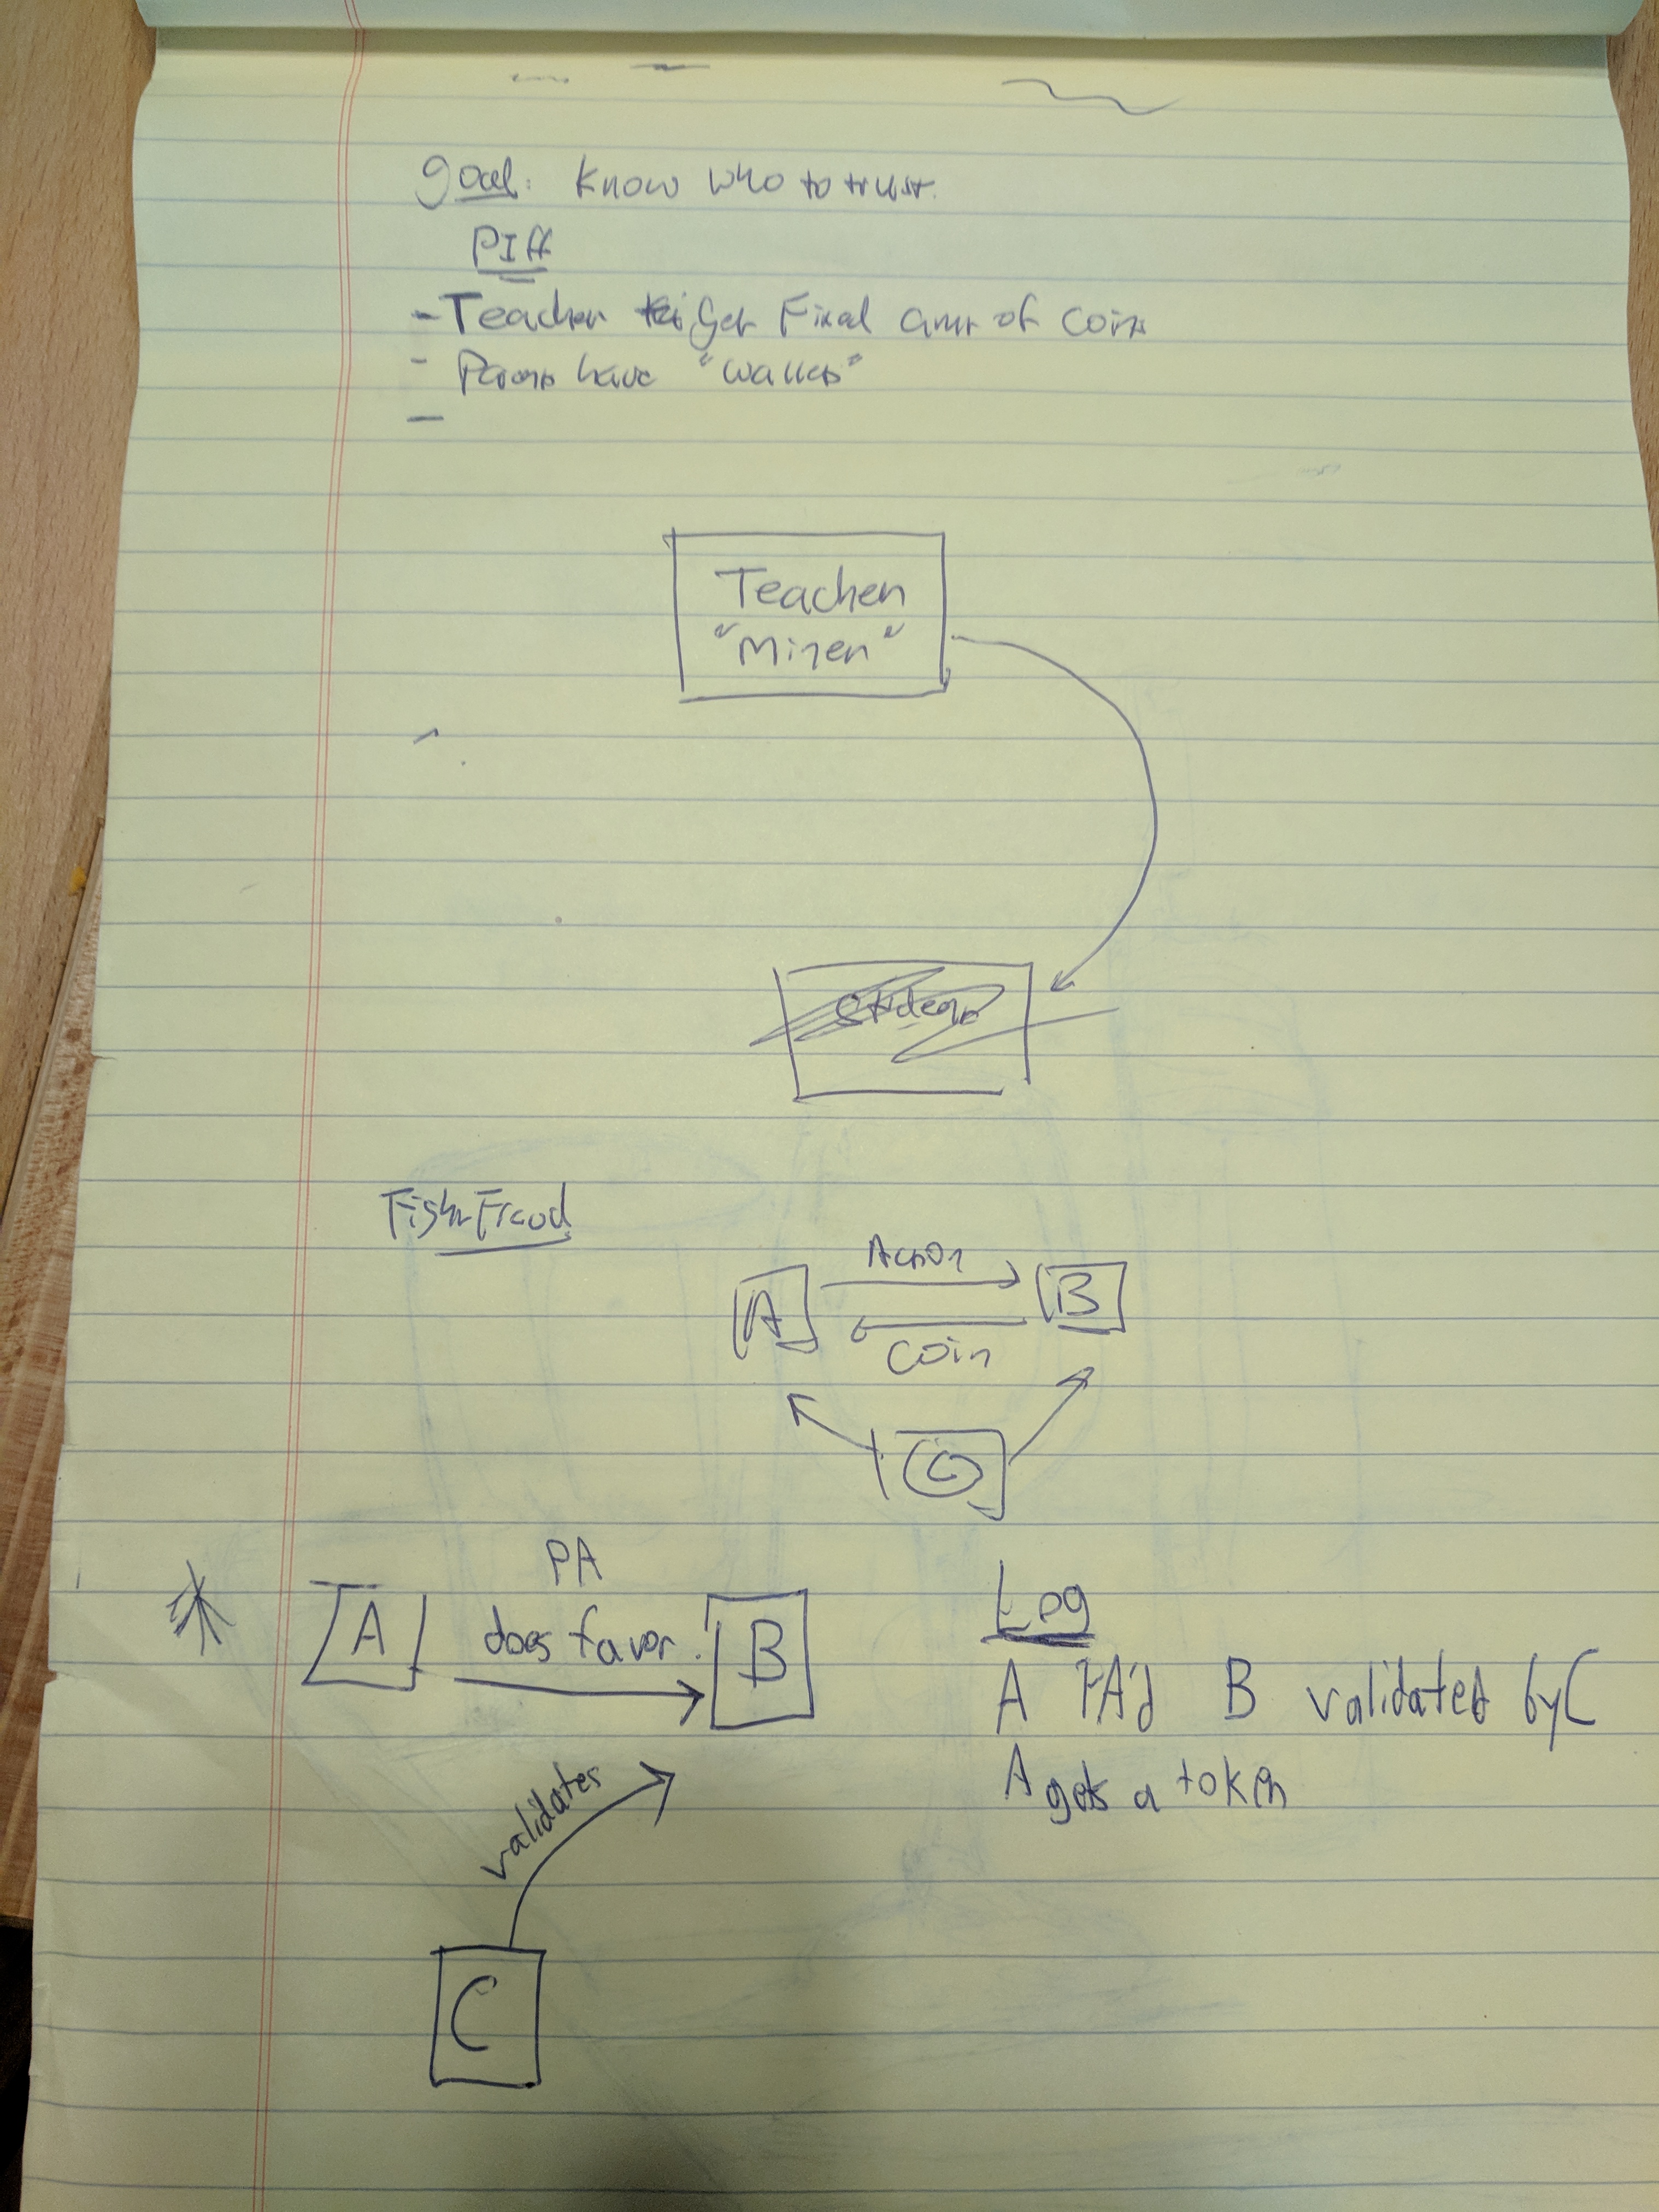 goal: Know who to trust.
PIF
- Teacher get Fixed amt of coins
- have "wallets"
-
Teacher
"Miner"
Students
Fish Fraud
Action
A B
Coin
C
PA
A does favor. B
validates
C
Log
A PA'd B validated by C
A gets a token